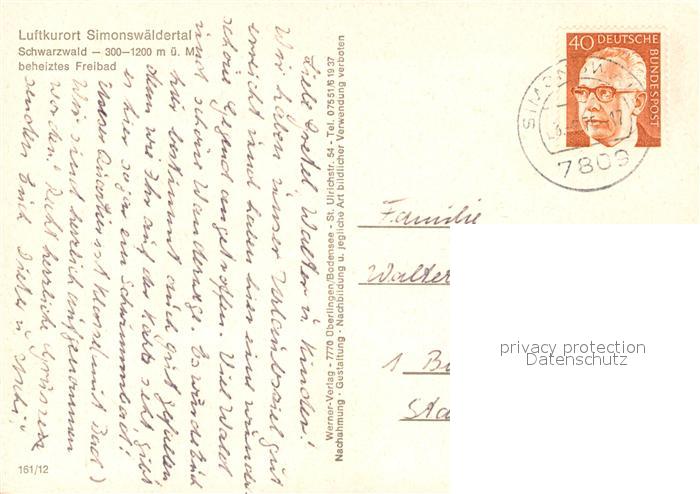 Luftkurort Simonswäldertal
Schwarzwald – 300–1200 m ü. M.
beheiztes Freibad
Liebe Gretel, Walter u. Kinder!
Wir haben unser Urlaubsziel gut
erreicht und haben hier eine wunder
schöne Gegend angetroffen. Viel Wald
und schöne Wanderwege. Es würde Euch
hier bestimmt auch gut gefallen
denn wie Ihr auf der Karte seht, gibt
es hier sogar ein Schwimmbad!
Unser Quartier ist Klasse! (mit Bad)
Wir sind herzlich aufgenommen
worden. Recht herzliche Grüsse
senden Euch Dieter u.
161/12
Werner-Verlag - 7770 Überlingen/Bodensee - St. Ulrichstr. 54 - Tel. 07551/61937
Nachahmung · Gestaltung · Nachbildung u. jegliche Art bildlicher Verwendung verboten
40 DEUTSCHE
BUNDESPOST
7809
Familie
Walter
1 B
Sta
privacy protection
Datenschutz